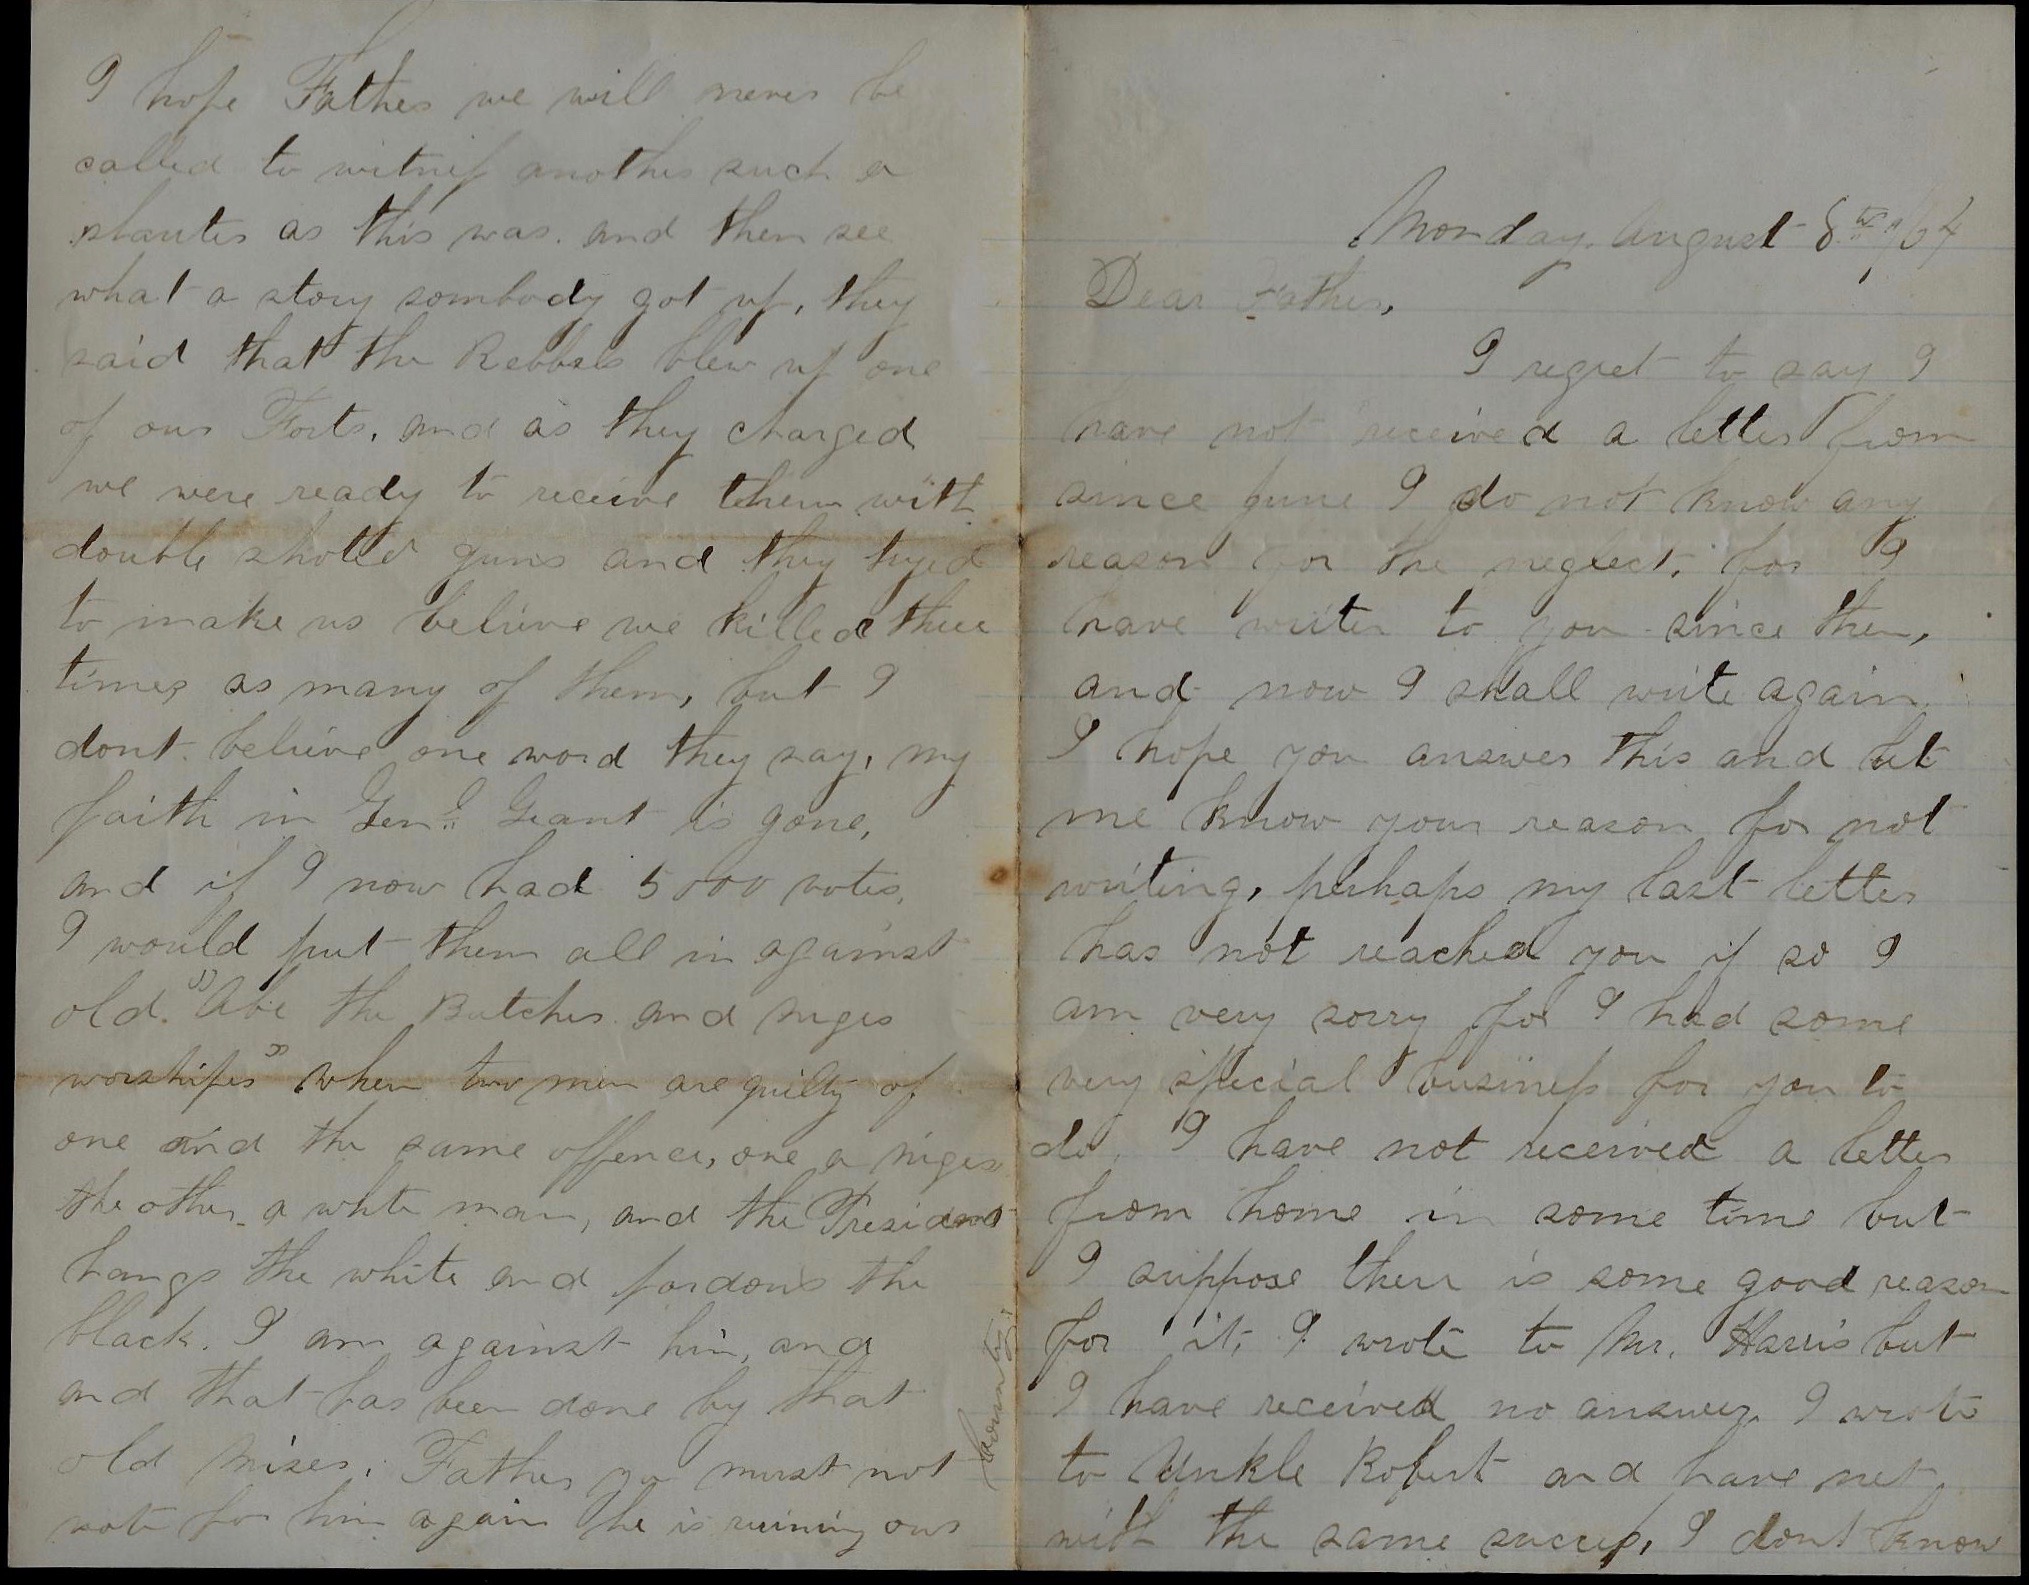 I hope Father we will never be
called to witness another such a
slauter as this was. and then see
what a story sombody got up, they
said that the Rebbels blew up one
of our Forts, and as they charged
we were ready to receive them with
double shoted guns and they tryed
to make us believe we killed three
times as many of them, but I
dont believe one word they say, my
faith in Genl. Grant is gone,
and if I now had 5000 votes,
I would put them all in against
old "Abe the Butcher and niger
worshiper" when two men are guilty of
one and the same offence, one a niger
the other a white man, and the President
hangs the white and pardons the
black. I am against him, and
and that has been done by that
old miser. Father you must not
vote for him again he is ruining our
country.
Monday, August 8th /64
Dear Father,
I regret to say I
have not received a letter from
since June I do not know any
reason for the neglect, for I
have writen to you since then,
and now I shall write again.
I hope you answer this and let
me know your reason for not
writing, perhaps my last letter
has not reached you if so I
am very sorry for I had some
very special business for you to
do. I have not received a letter
from home in some time but
I suppose there is some good reason
for it, I wrote to Mr. Harris but
I have received no answer. I wrote
to Unkle Robert and have met
with the same success, I dont know